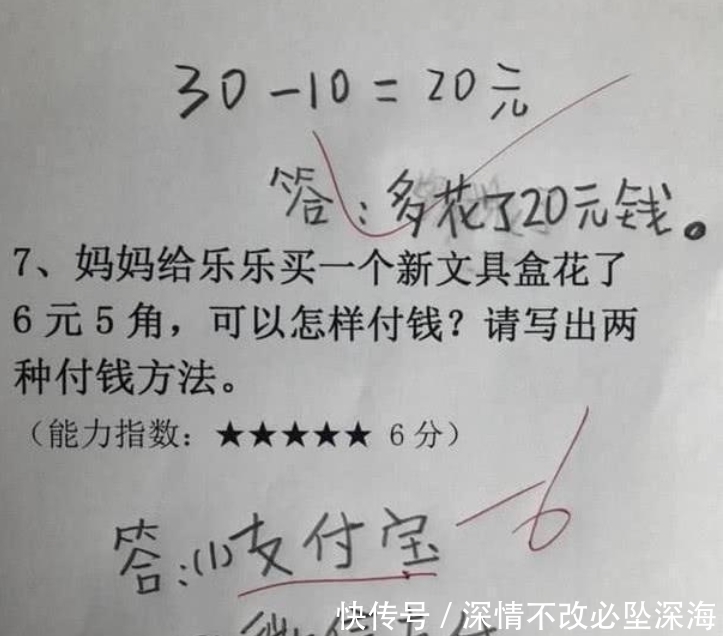 30-10=20元
答：多花了20元钱。
7、妈妈给乐乐买一个新文具盒花了
6元5角，可以怎样付钱？请写出两
种付钱方法。
（能力指数：★★★★★ 6分）
-6
答：(1)支付宝
快传号/深情不改必坠深海